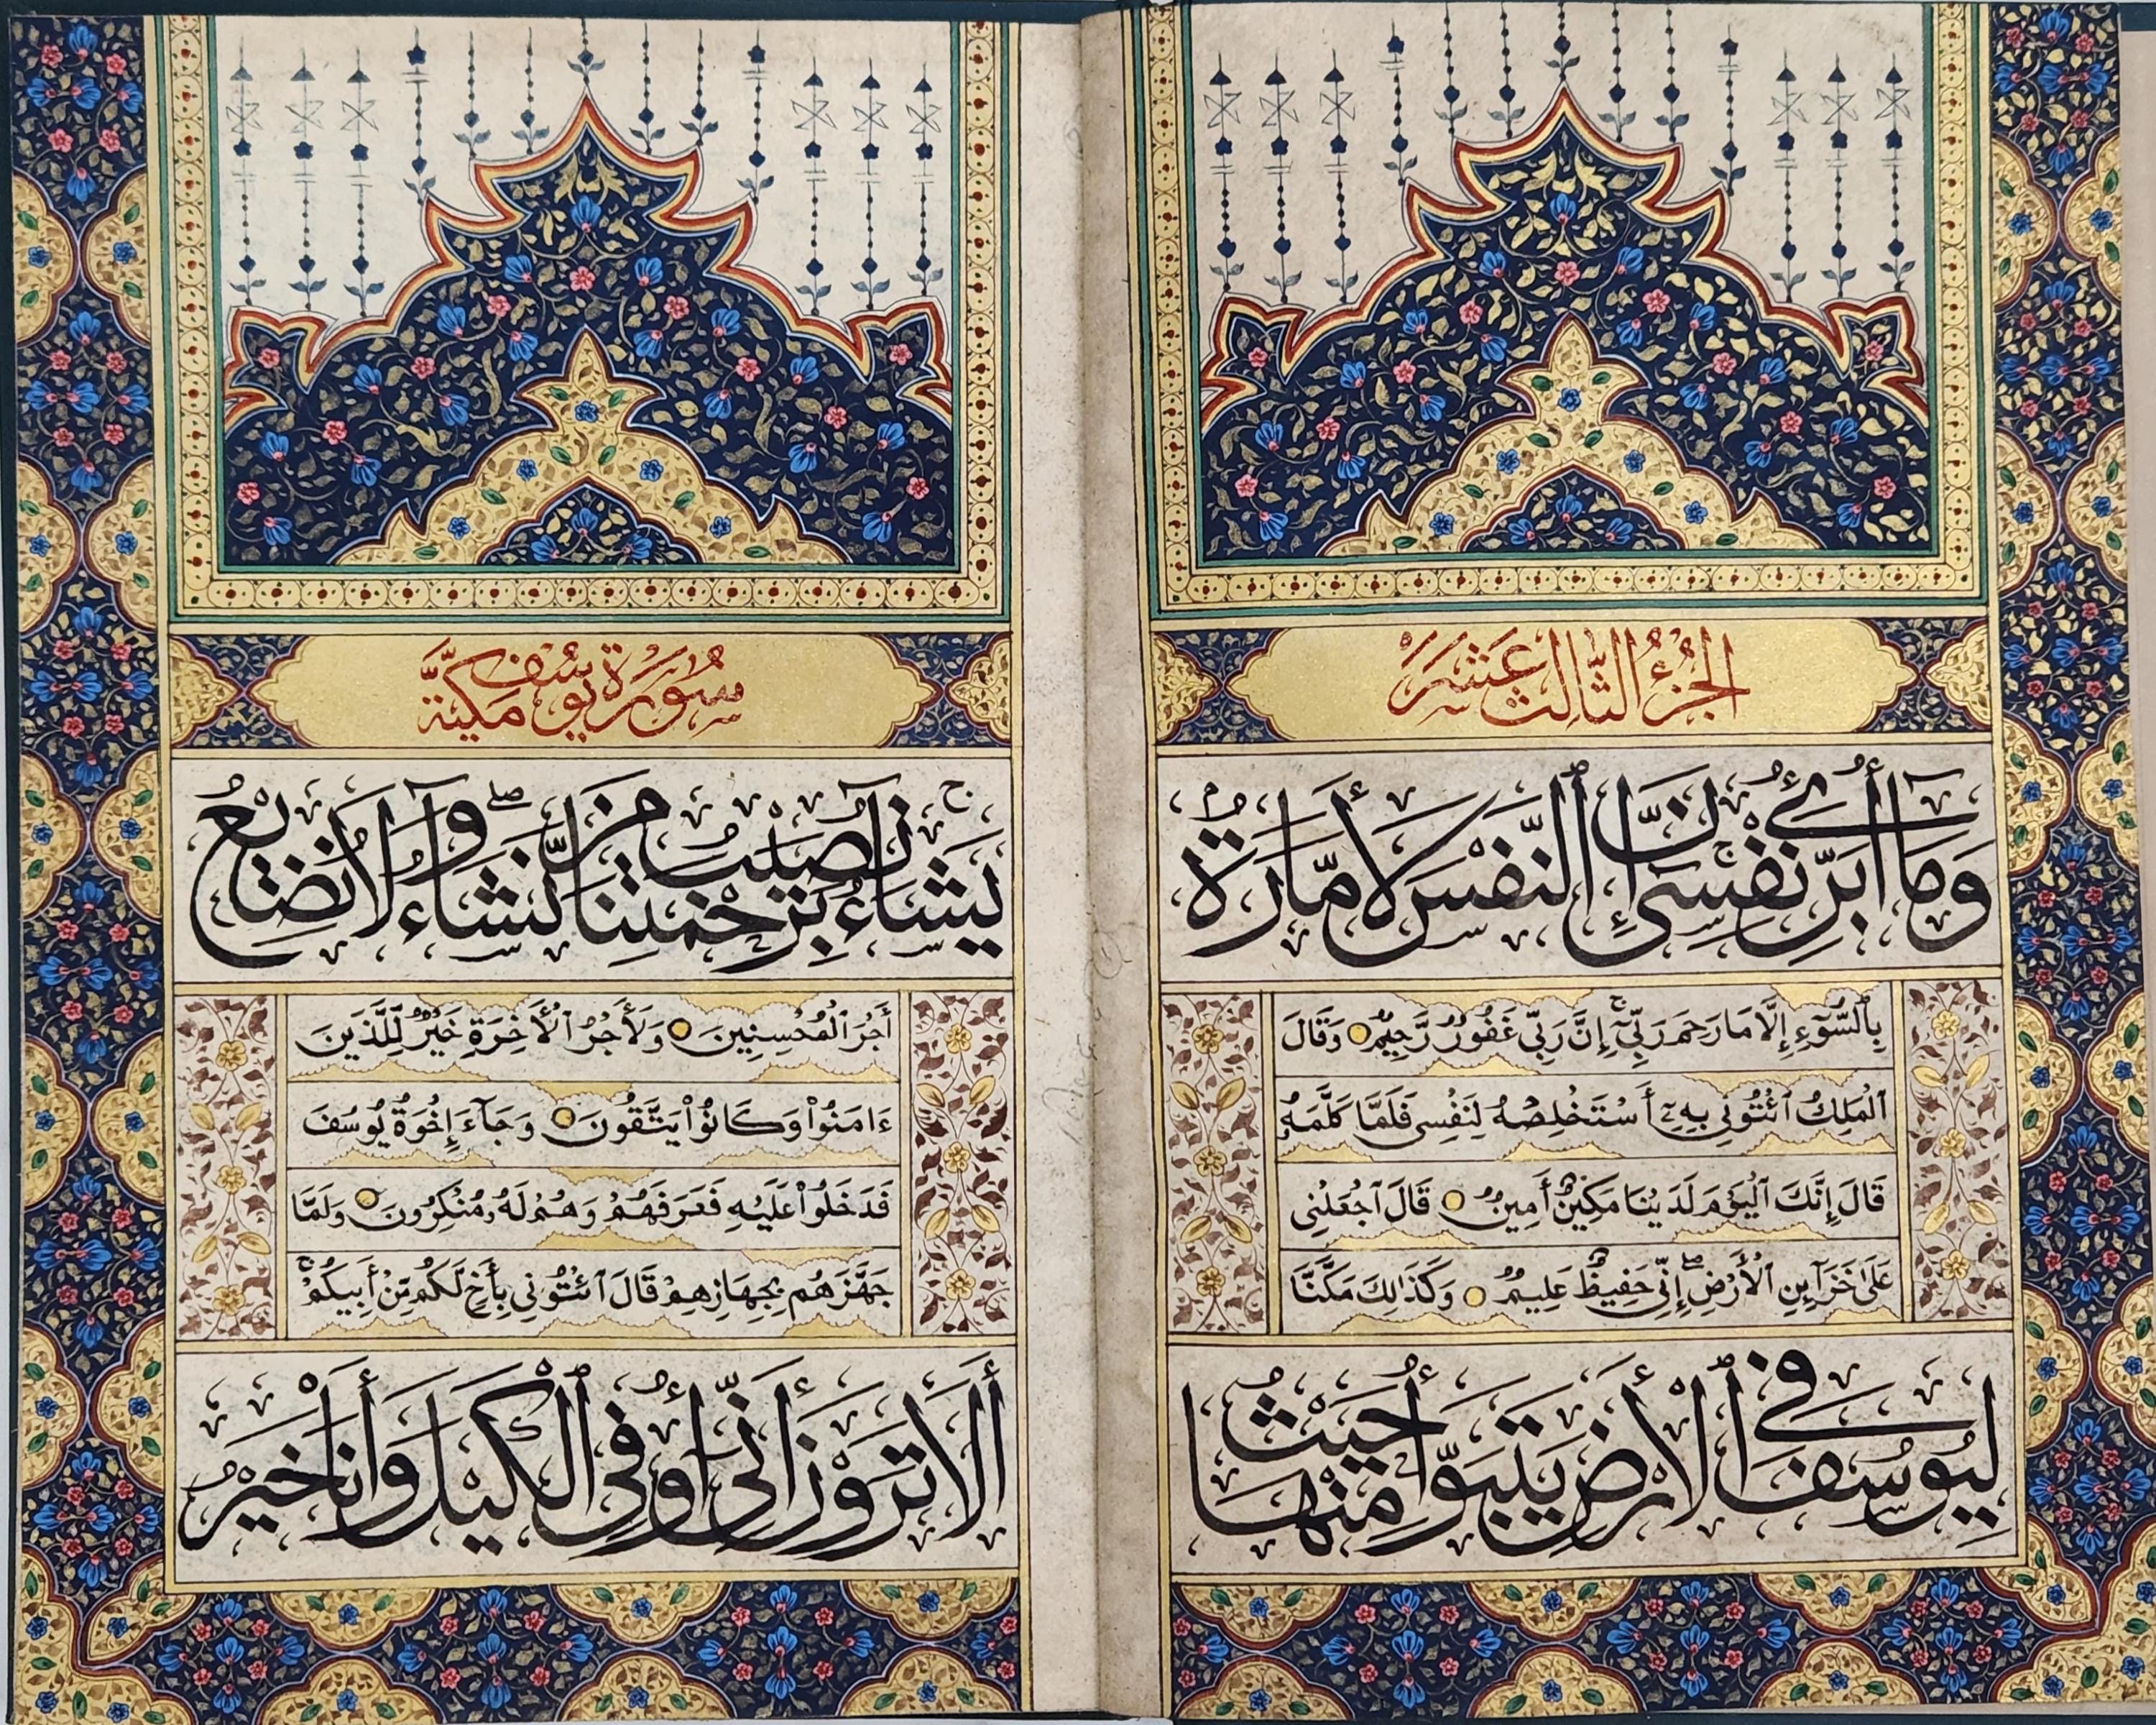 الجُزْءُ الثَّالِثَ عَشَرَ
وَمَآ أُبَرِّئُ نَفْسِىٓ ۚ إِنَّ ٱلنَّفْسَ لَأَمَّارَةٌۢ
بِٱلسُّوٓءِ إِلَّا مَا رَحِمَ رَبِّىٓ ۚ إِنَّ رَبِّى غَفُورٌ رَّحِيمٌ وَقَالَ
ٱلْمَلِكُ ٱئْتُونِى بِهِۦٓ أَسْتَخْلِصْهُ لِنَفْسِى فَلَمَّا كَلَّمَهُۥ
قَالَ إِنَّكَ ٱلْيَوْمَ لَدَيْنَا مَكِينٌ أَمِينٌ قَالَ ٱجْعَلْنِى
عَلَىٰ خَزَآئِنِ ٱلْأَرْضِ ۖ إِنِّى حَفِيظٌ عَلِيمٌ وَكَذَٰلِكَ مَكَّنَّا
لِيُوسُفَ فِى ٱلْأَرْضِ يَتَبَوَّأُ مِنْهَا حَيْثُ
سُورَةُ يُوسُفَ مَكِّيَّةٌ
يَشَآءُ ۚ نُصِيبُ بِرَحْمَتِنَا مَن نَّشَآءُ ۖ وَلَا نُضِيعُ
أَجْرَ ٱلْمُحْسِنِينَ وَلَأَجْرُ ٱلْأَخِرَةِ خَيْرٌ لِّلَّذِينَ
ءَامَنُوا۟ وَكَانُوا۟ يَتَّقُونَ وَجَآءَ إِخْوَةُ يُوسُفَ
فَدَخَلُوا۟ عَلَيْهِ فَعَرَفَهُمْ وَهُمْ لَهُۥ مُنْكِرُونَ وَلَمَّا
جَهَّزَهُم بِجَهَازِهِمْ قَالَ ٱئْتُونِى بِأَخٍ لَّكُم مِّنْ أَبِيكُمْ ۚ
أَلَا تَرَوْنَ أَنِّىٓ أُوفِى ٱلْكَيْلَ وَأَنَا۠ خَيْرُ